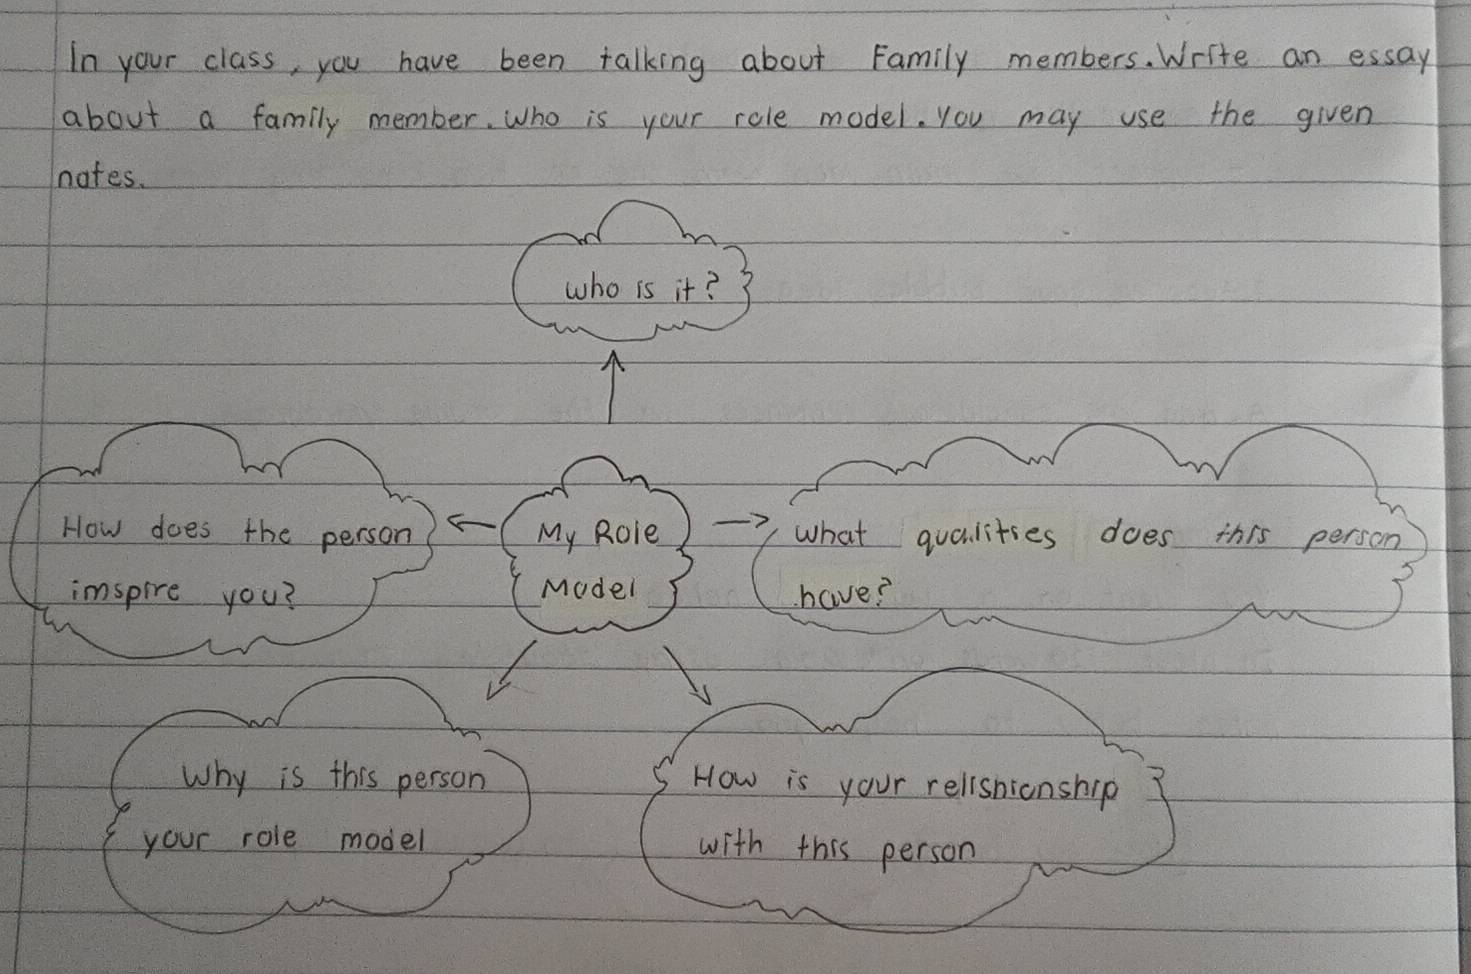 In your class, you have been talking about Family members. Write an essay
about a family member. Who is your role model. You may use the given
notes.
who is it?
How does the person
imspire you?
My Role
Model
What qualities does this person
have?
Why is this person
your role model
How is your relishionship
with this person